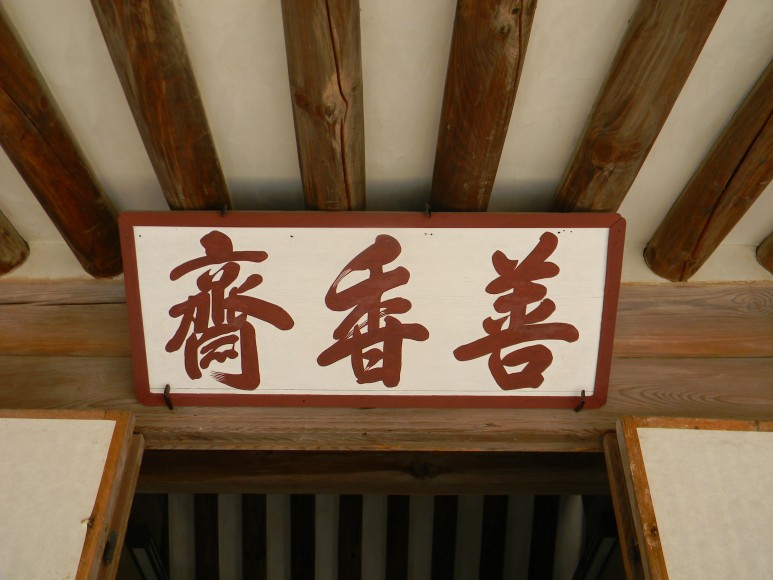 善香齋